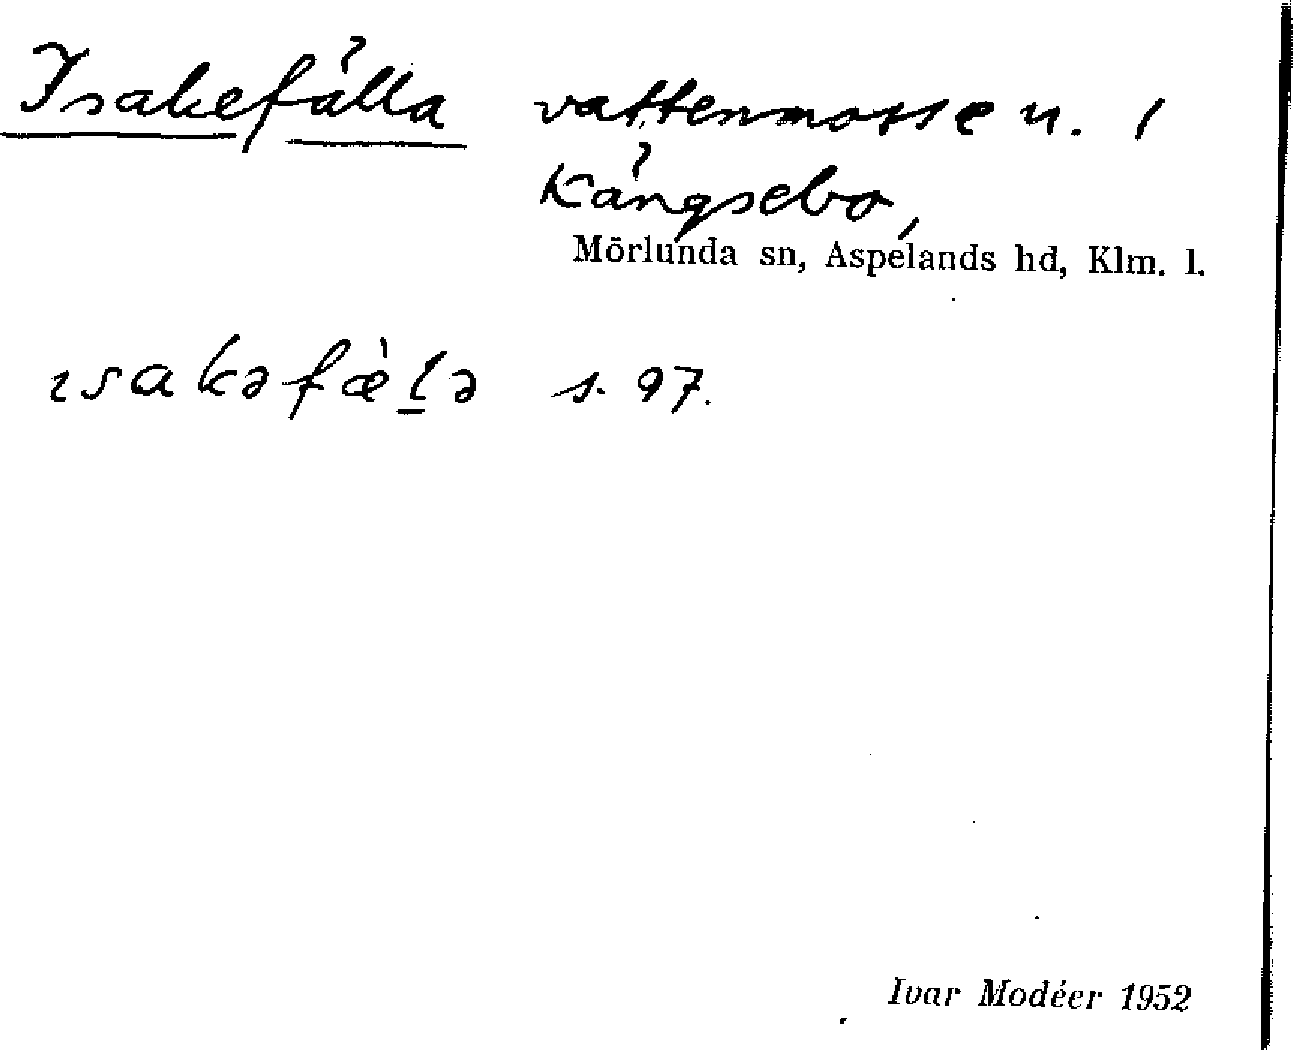 Isakefälla vattenmosse n. 1
Kängsebo,
Mörlunda sn, Aspelands hd, Klm. l.
ısakəfæ̀ḻə s. 97.
Ivar Modéer 1952